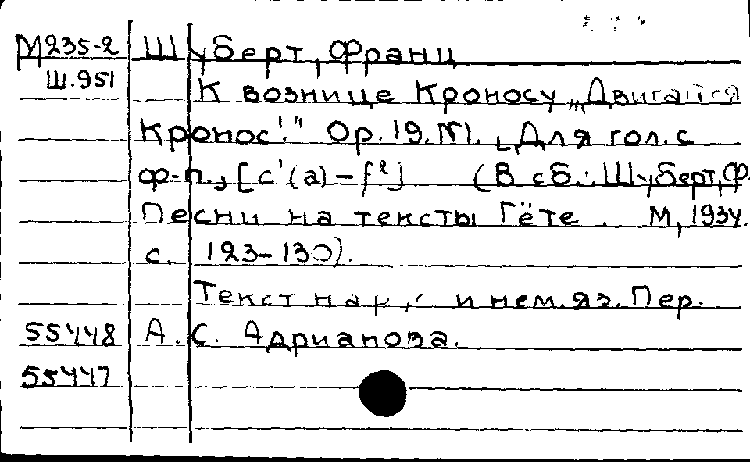 М235-2 Шуберт, Франц
Ш.951 К вознице Кроносу „Двигайся
Кронос!" Op.19.№1. [Для гол. с
ф-п., [c'(a)–f²] (В сб.: Шуберт, Ф.
Песни на тексты Гёте. М., 1934.
с. 123–130).
Текст на р. и нем. яз. Пер.
55448 А. С. Адрианова.
55447